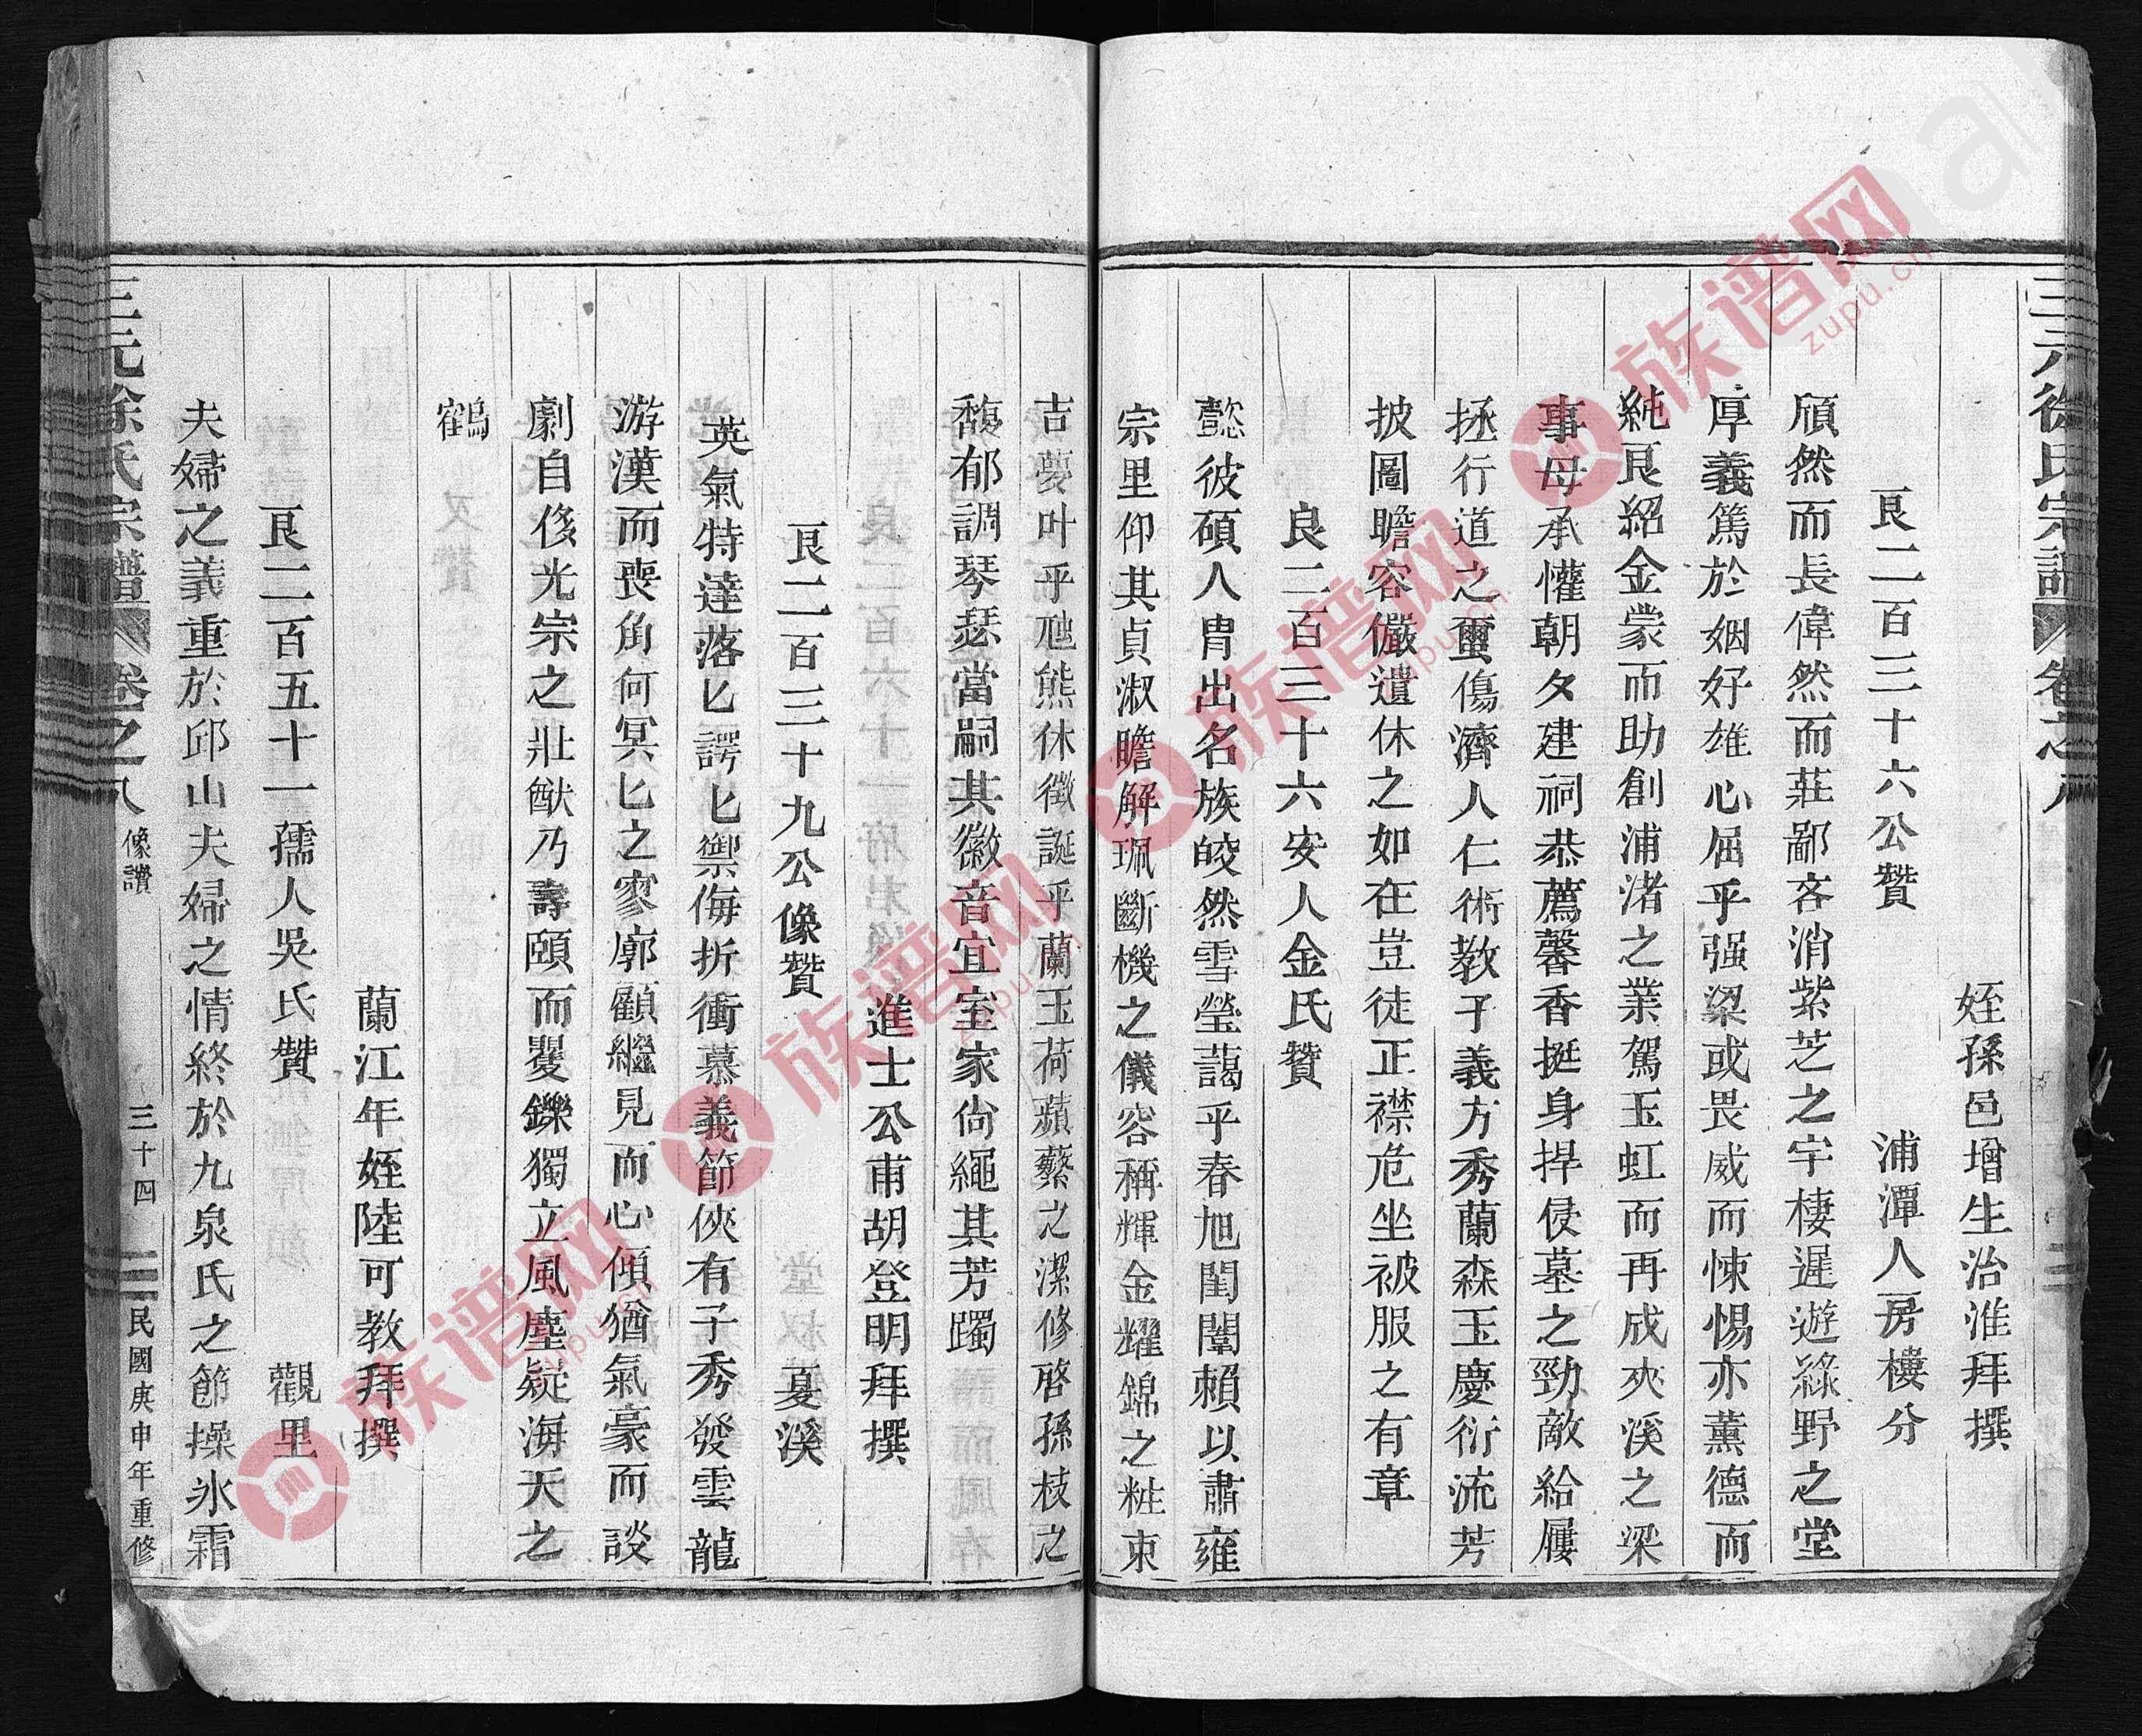 三元徐氏宗譜 卷之八
姪孫邑增生治淮拜撰
艮二百三十六公贊 浦潭人房樓分
頎然而長偉然而莊鄙吝消紫芝之宇棲遲遊綠野之堂
厚義篤於姻好雄心屈乎强梁或畏威而悚惕亦薰德而
純艮紹金蒙而助創浦渚之業駕玉虹而再成夾溪之梁
事母承懽朝夕建祠恭薦馨香挺身捍侵墓之勁敵給屨
拯行道之薑傷濟人仁術教子義方秀蘭森玉慶衍流芳
披圖瞻容儼遺休之如在豈徒正襟危坐被服之有章
良二百三十六安人金氏贊
懿彼碩人胄出名族皎然雪瑩藹乎春旭閨闈賴以肅雍
宗里仰其貞淑瞻解珮斷機之儀容稱輝金耀錦之粧束
吉夢叶乎虺熊休徵誕乎蘭玉荷蘋蘩之潔修啓孫枝之
馥郁調琴瑟當嗣其徽音宜室家尙繩其芳躅
進士公甫胡登明拜撰
艮二百三十九公像贊 夏溪
英氣特達落匕諤匕禦侮折衝慕義節俠有子秀發雲龍
游漢而喪角何冥匕之寥廓顧繼見而心傾猶氣豪而談
劇自侈光宗之壯猷乃壽頤而矍鑠獨立風塵疑海天之
鶴
蘭江年姪陸可教拜撰
艮二百五十一孺人吳氏贊 觀里
夫婦之義重於邱山夫婦之情終於九泉氏之節操氷霜
三元徐氏宗譜 卷之八 像讚 三十四 民國庚申年重修
族谱网 zupu.cn
族谱网 zupu.cn
族谱网 zupu.cn
族谱网 zupu.cn